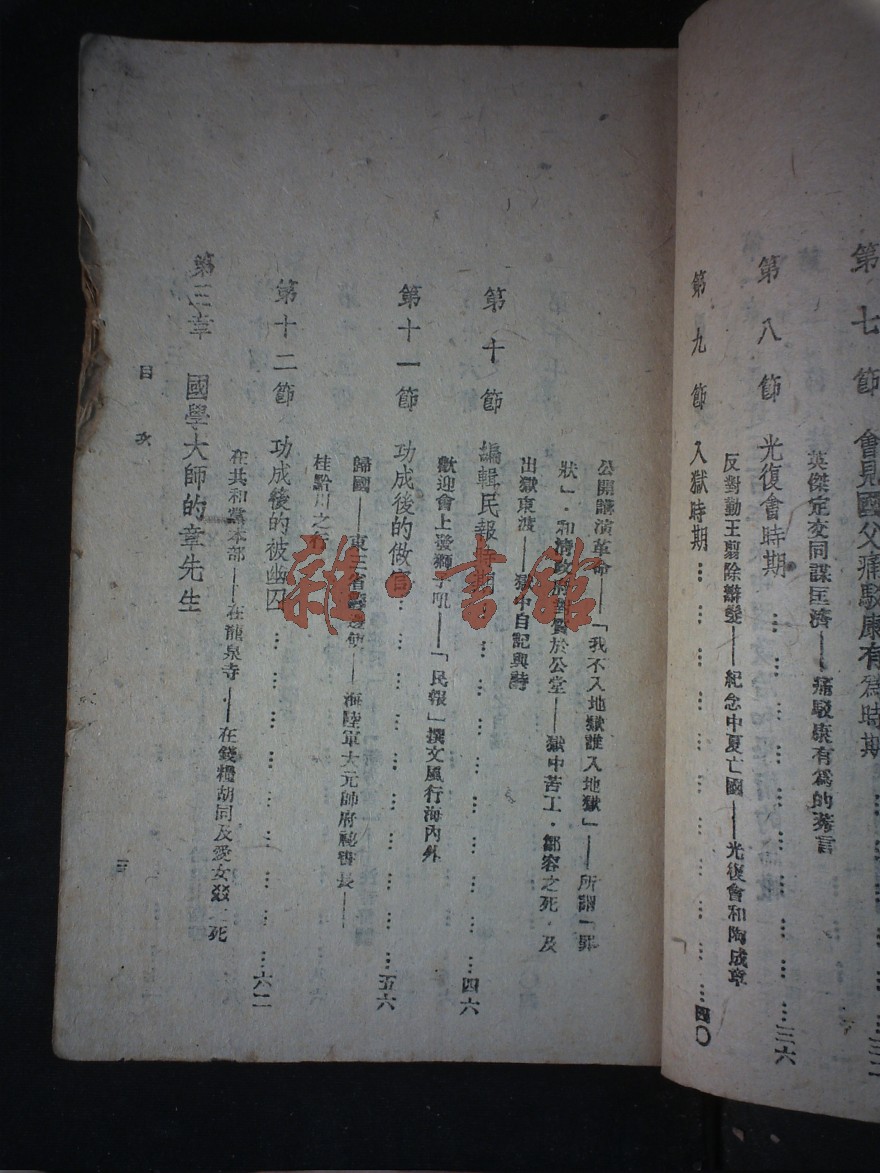 第七節　會見國父痛駁康有爲時期
英傑定交同謀匡濟——痛駁康有爲的莠言
第八節　光復會時期……………………三六
反對勤王翦除辮髮——紀念中夏亡國——光復會和陶成章
第九節　入獄時期……………………四〇
公開講演革命——「我不入地獄誰入地獄」——所謂「罪
狀」·和清政府對質於公堂——獄中苦工·鄒容之死·及
出獄東渡——獄中自記與詩
第十節　編輯民報時期……………………四六
歡迎會上發獅子吼——「民報」撰文風行海內外
第十一節　功成後的做官……………………五六
歸國——東三省籌邊使——海陸軍大元帥府祕書長——
桂黔川之行
第十二節　功成後的被幽囚……………………六二
在共和黨本部——在龍泉寺——在錢糧胡同及愛女㸚之死
第三章　國學大師的章先生
目次
三
雜·書館